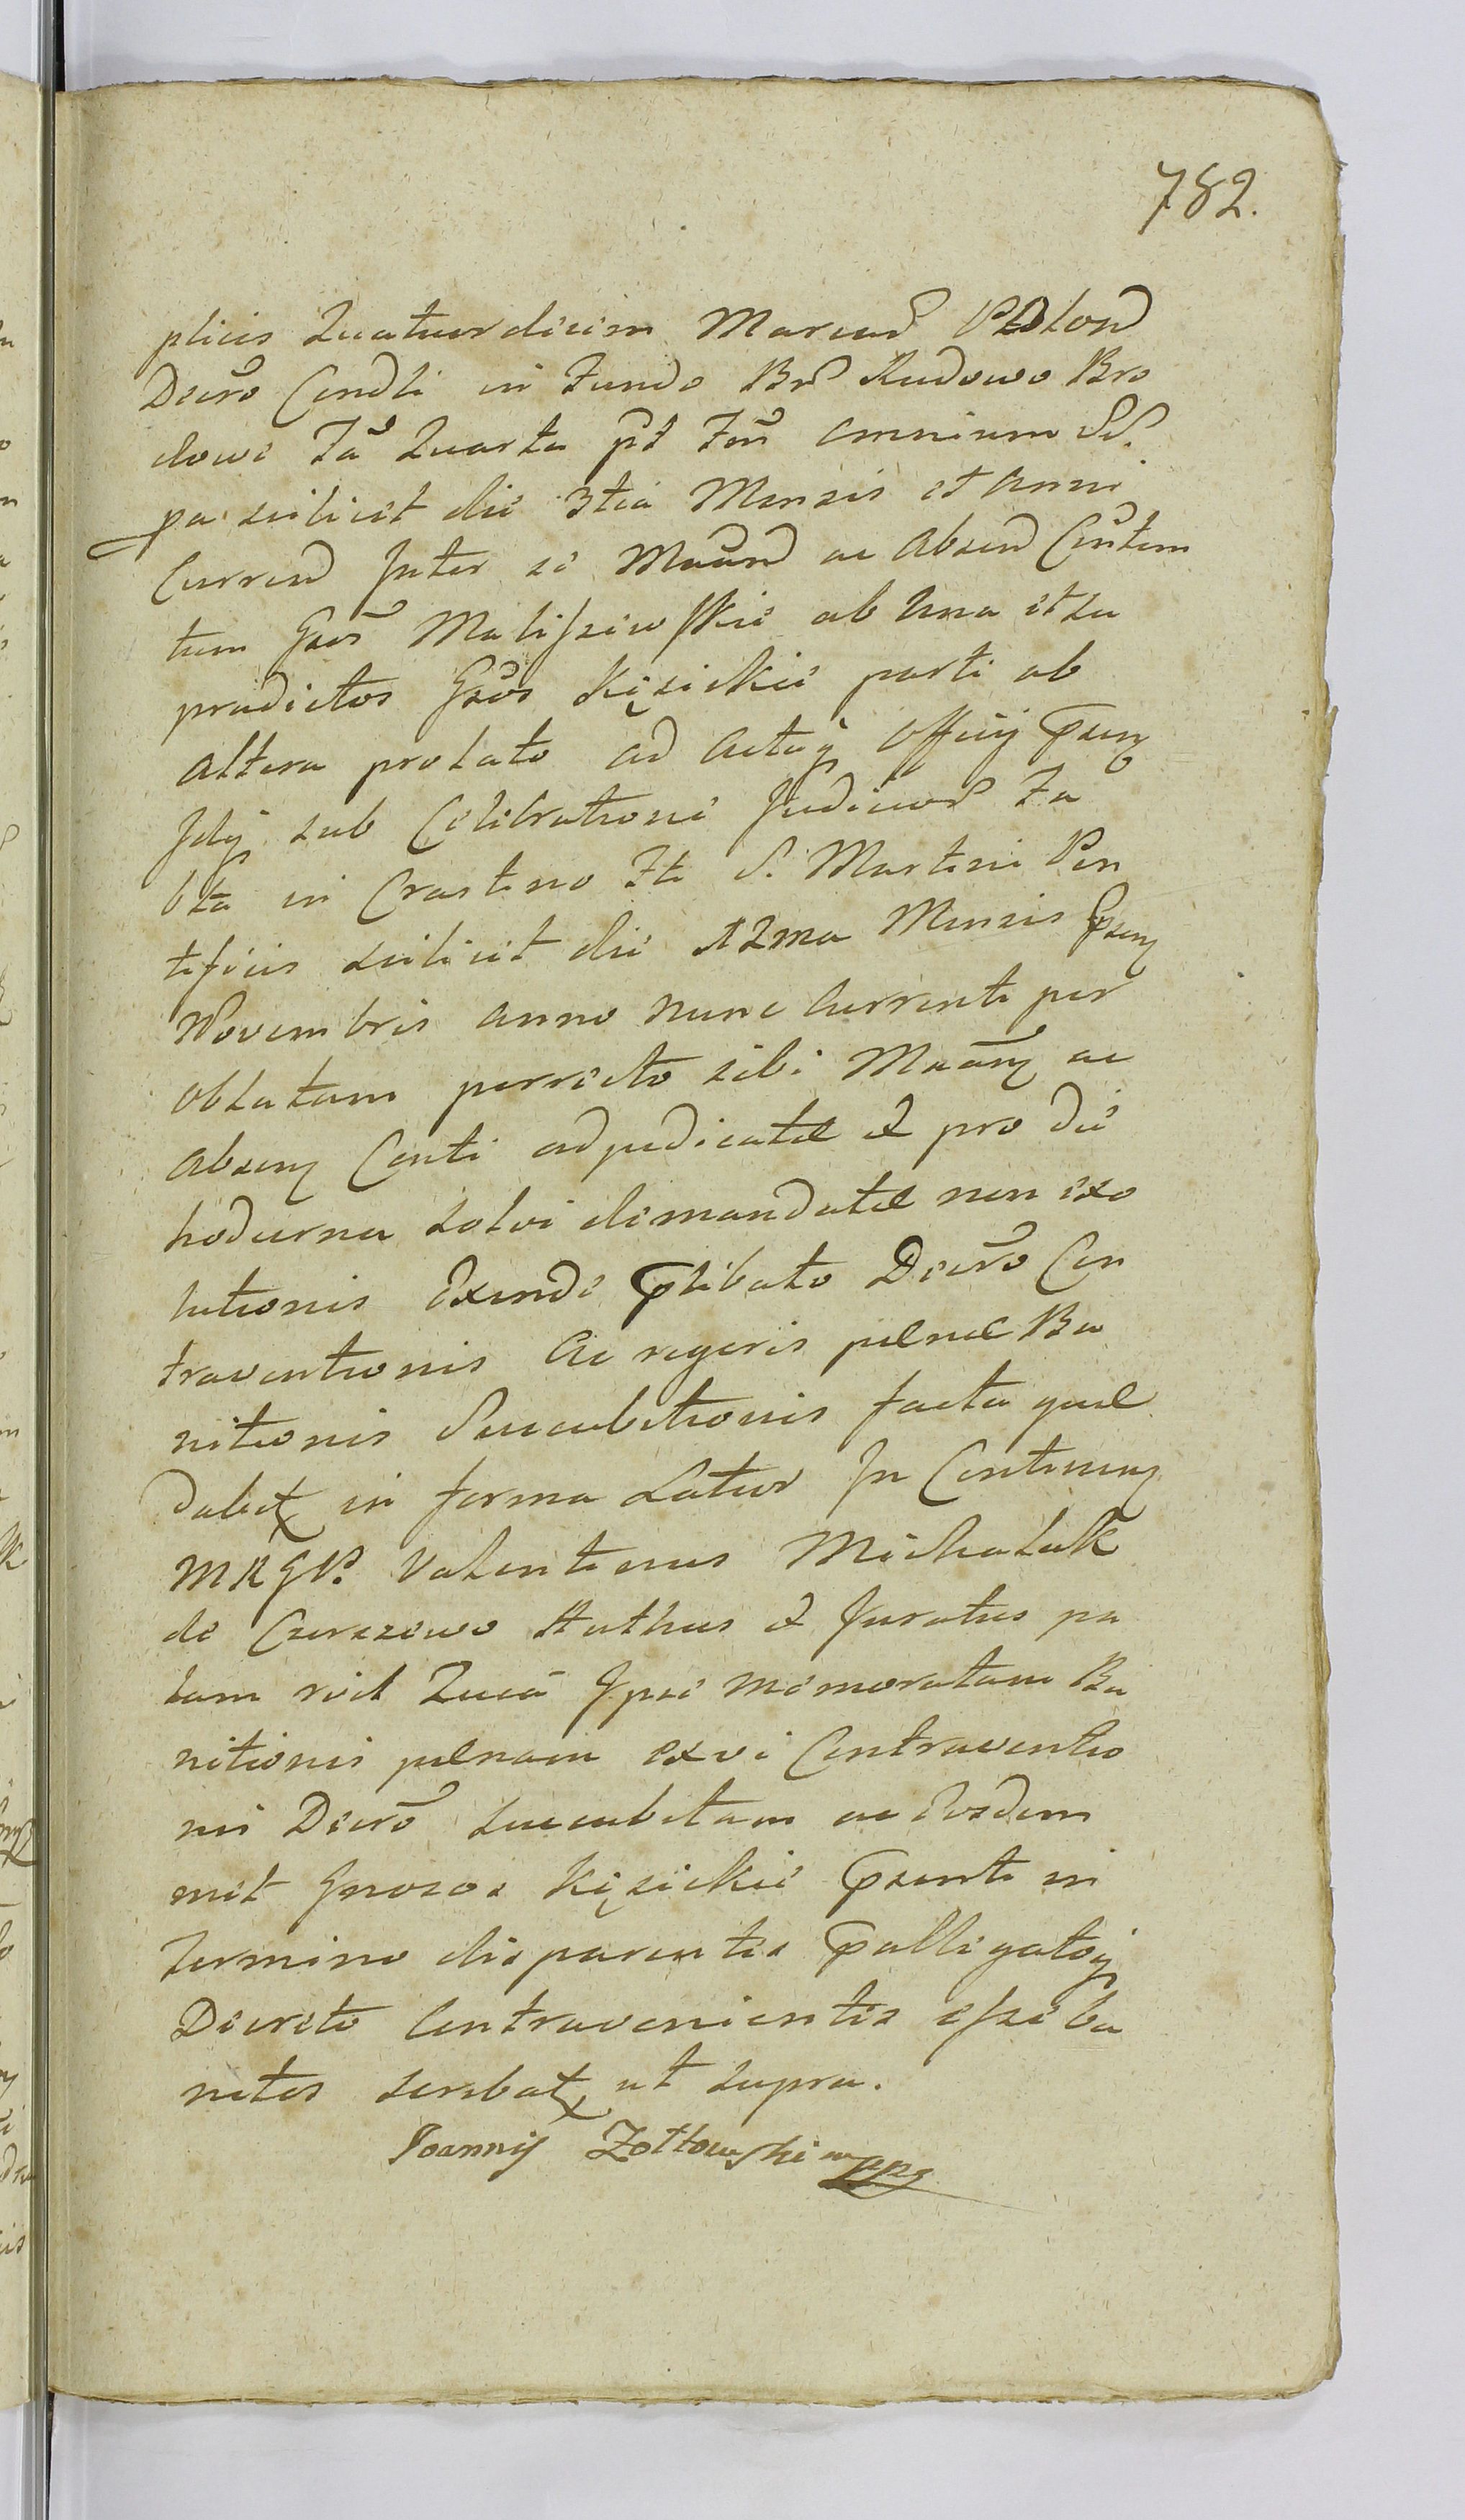 782.
plicis Quatuordicim Marcar̃ Polon̄
Decr̃o Condli in Fundo Bñr Rudowo Bro
dowe Fã Quarta pt Fm̃ Omnium SS.
pa scilicet die 3tia Mensis et Anni
Curren̄ Inter se Maãn ac Absen̄ Cõntem
tum Gsos̃ Maliszewskie ab Una et su
pradictos Gsos̃ Kęsickie parte ab
altera prolato ad Actaq̃ Officij p̃sen̄
Idq̃ sub Celebratione Judicior̃ Fa
lta in Crastino Fti S. Martini Pon
tificis scilicet die 12ma Mensis p̃sen̄
Novembris anno nunc Currenti per
oblatam porrecto sibi Maãn̄ ac
absen̄ Conti adjudicatæ & pro die
hodierna solvi demandatæ non exo
lutionis Exinde p̃libato Decr̃o Con
traventionis Ac regeris pœnæ Ba
nitionis Succubitionis facta quæ
dabit̃ in forma Latior̃ In Continen̄
MRGP. Valentinus Michalak
de Czerszewo Authus & Juratus pa
lam rect Quiã Ipse memoratam Ba
nitionis pœnam ex vi Contraventio
nis Decr̃o succubitam ac Eosdem
met Gnosos Kęsickie p̃senti in
Termino disparentes p̃alligatoq̃
Decreto Contravenientes esse ba
nitos scribat̃ ut supra.
Joannis Zołtowski mpp